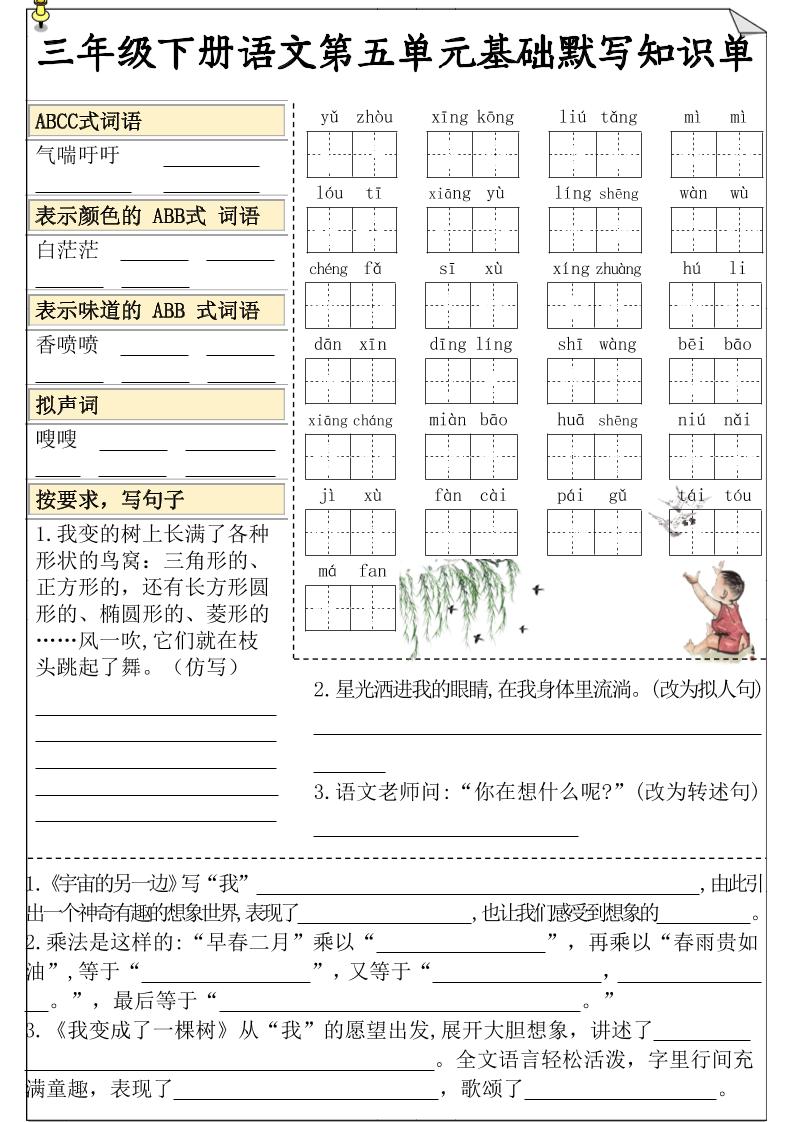 三年级下册语文第五单元基础默写知识单
ABCC式词语
气喘吁吁
表示颜色的 ABB式 词语
白茫茫
表示味道的 ABB 式词语
香喷喷
拟声词
嗖嗖
按要求，写句子
1.我变的树上长满了各种
形状的鸟窝：三角形的、
正方形的，还有长方形圆
形的、椭圆形的、菱形的
……风一吹,它们就在枝
头跳起了舞。（仿写）
yǔ zhòu xīng kōng liú tǎng mì mì
lóu tī xiāng yù líng shēng wàn wù
chéng fǎ sī xù xíng zhuàng hú li
dān xīn dīng líng shī wàng bēi bāo
xiāng cháng miàn bāo huā shēng niú nǎi
jì xù fàn cài pái gǔ tái tóu
má fan
2.星光洒进我的眼睛,在我身体里流淌。(改为拟人句)
3.语文老师问:“你在想什么呢?”(改为转述句)
1.《宇宙的另一边》写“我”,由此引
出一个神奇有趣的想象世界,表现了,也让我们感受到想象的。
2.乘法是这样的:“早春二月”乘以“”，再乘以“春雨贵如
油”,等于“”，又等于“，
。”，最后等于“。”
3.《我变成了一棵树》从“我”的愿望出发,展开大胆想象，讲述了
。全文语言轻松活泼，字里行间充
满童趣，表现了，歌颂了。